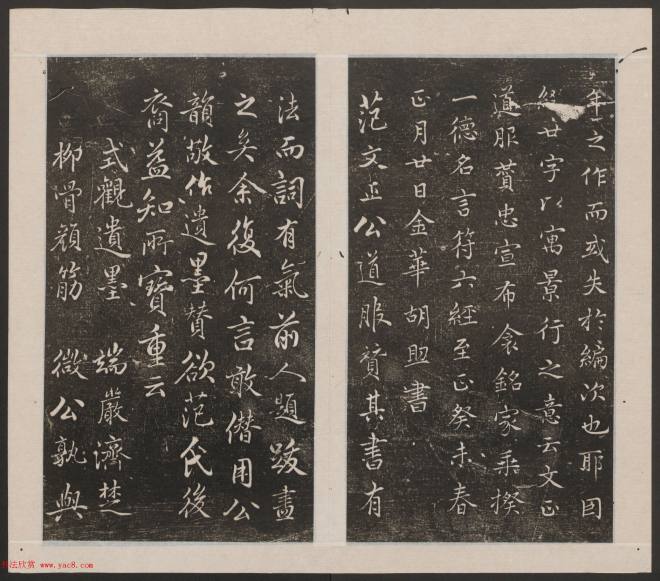 年之作而或失於編次也耶因
廿字以寓景行之意云文正
道服賛忠宣布衾銘家乗揆
一德名言符六經至正癸未春
正月廿日金華胡助書
范文正公道服賛其書有
法而詞有氣前人題跋盡
之矣余復何言敢僭用公
韻敬作遺墨賛欲范氏後
裔益知所寶重云
式觀遺墨 端嚴濟楚
柳骨顔筋 微公孰與
书法欣赏 www.yac8.com